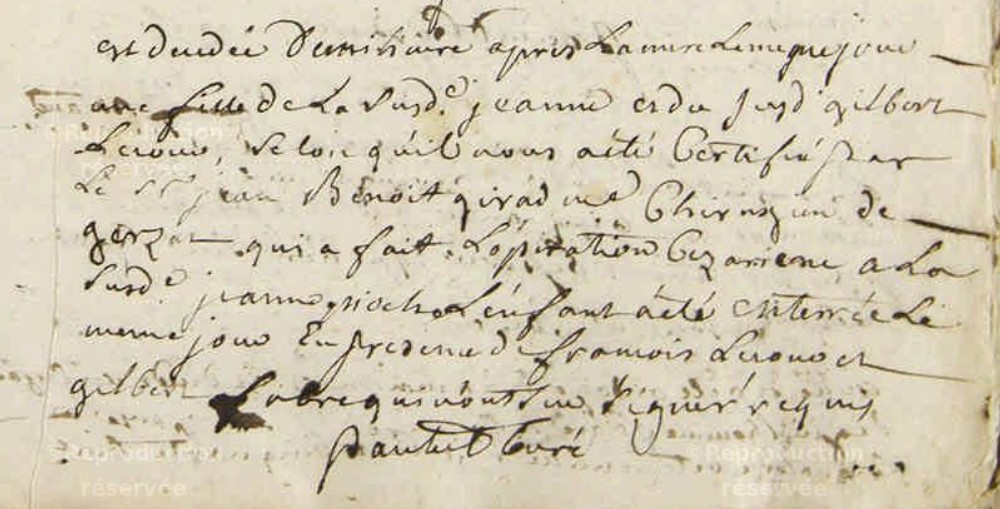 est decedée apres la mere le meme jour
une fille de La Susd.e jeanne et du susd gilbert
Leroux, selon quil nous aété Certifié par
Le Sr jean Benoit girad me Chirurgien de
gerzat qui a fait L'opération Cezariene a La
Susd.e jeanne L'énfant aété enterrée Le
meme jour En presence de francois Leroux et
gilbert fabre qui n'ont Sceu Signer requis
pautet Curé
©Reproduction
réservée
©Reproduction
réservée
©Reproduction
réservée